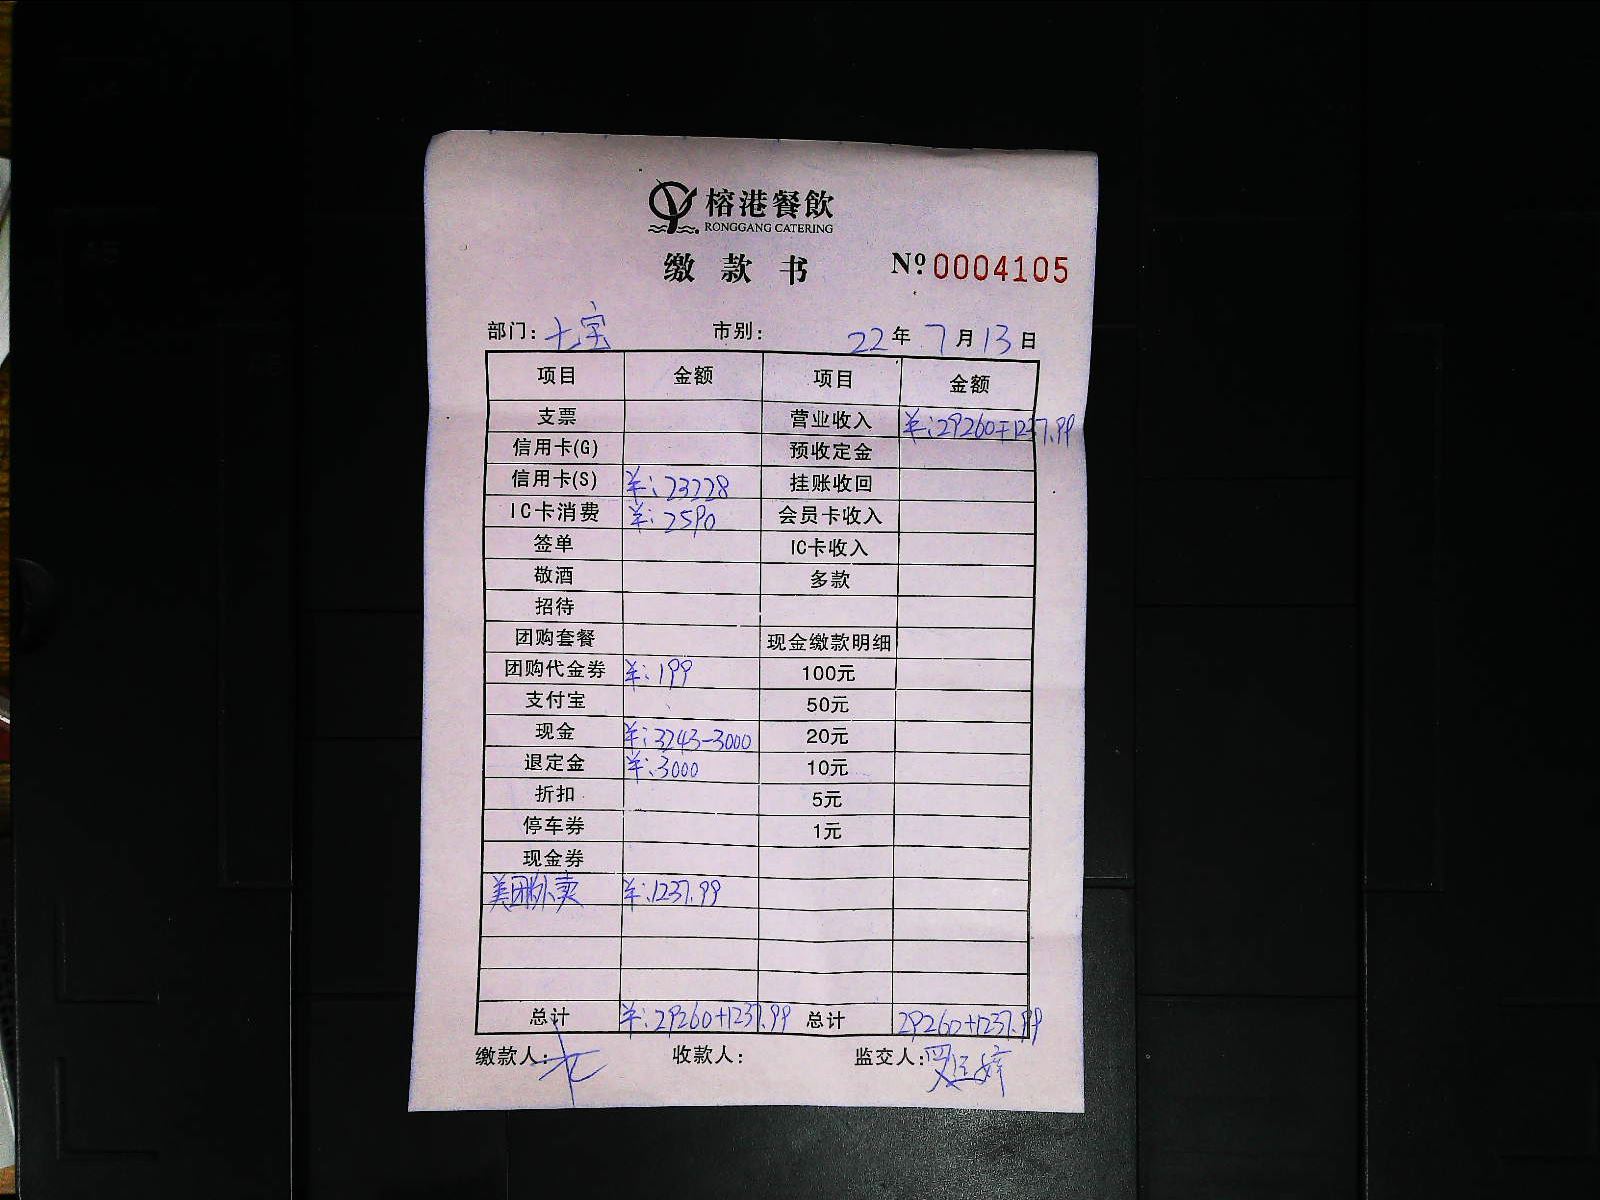 榕港餐飲
RONGGANG CATERING
缴款书 № 0004105
部门: 七宝 市别: 22年 7月13日
项目 金额 项目 金额
支票 营业收入 ¥:29260+1237.99
信用卡(G) 预收定金
信用卡(S) ¥:23228 挂账收回
IC卡消费 ¥:2590 会员卡收入
签单 IC卡收入
敬酒 多款
招待
团购套餐 现金缴款明细
团购代金券 ¥:199 100元
支付宝 50元
现金 ¥:3243-3000 20元
退定金 ¥:3000 10元
折扣 5元
停车券 1元
现金券
美团外卖 ¥:1237.99
总计 ¥:29260+1237.99 总计 29260+1237.99
缴款人: 收款人: 监交人: